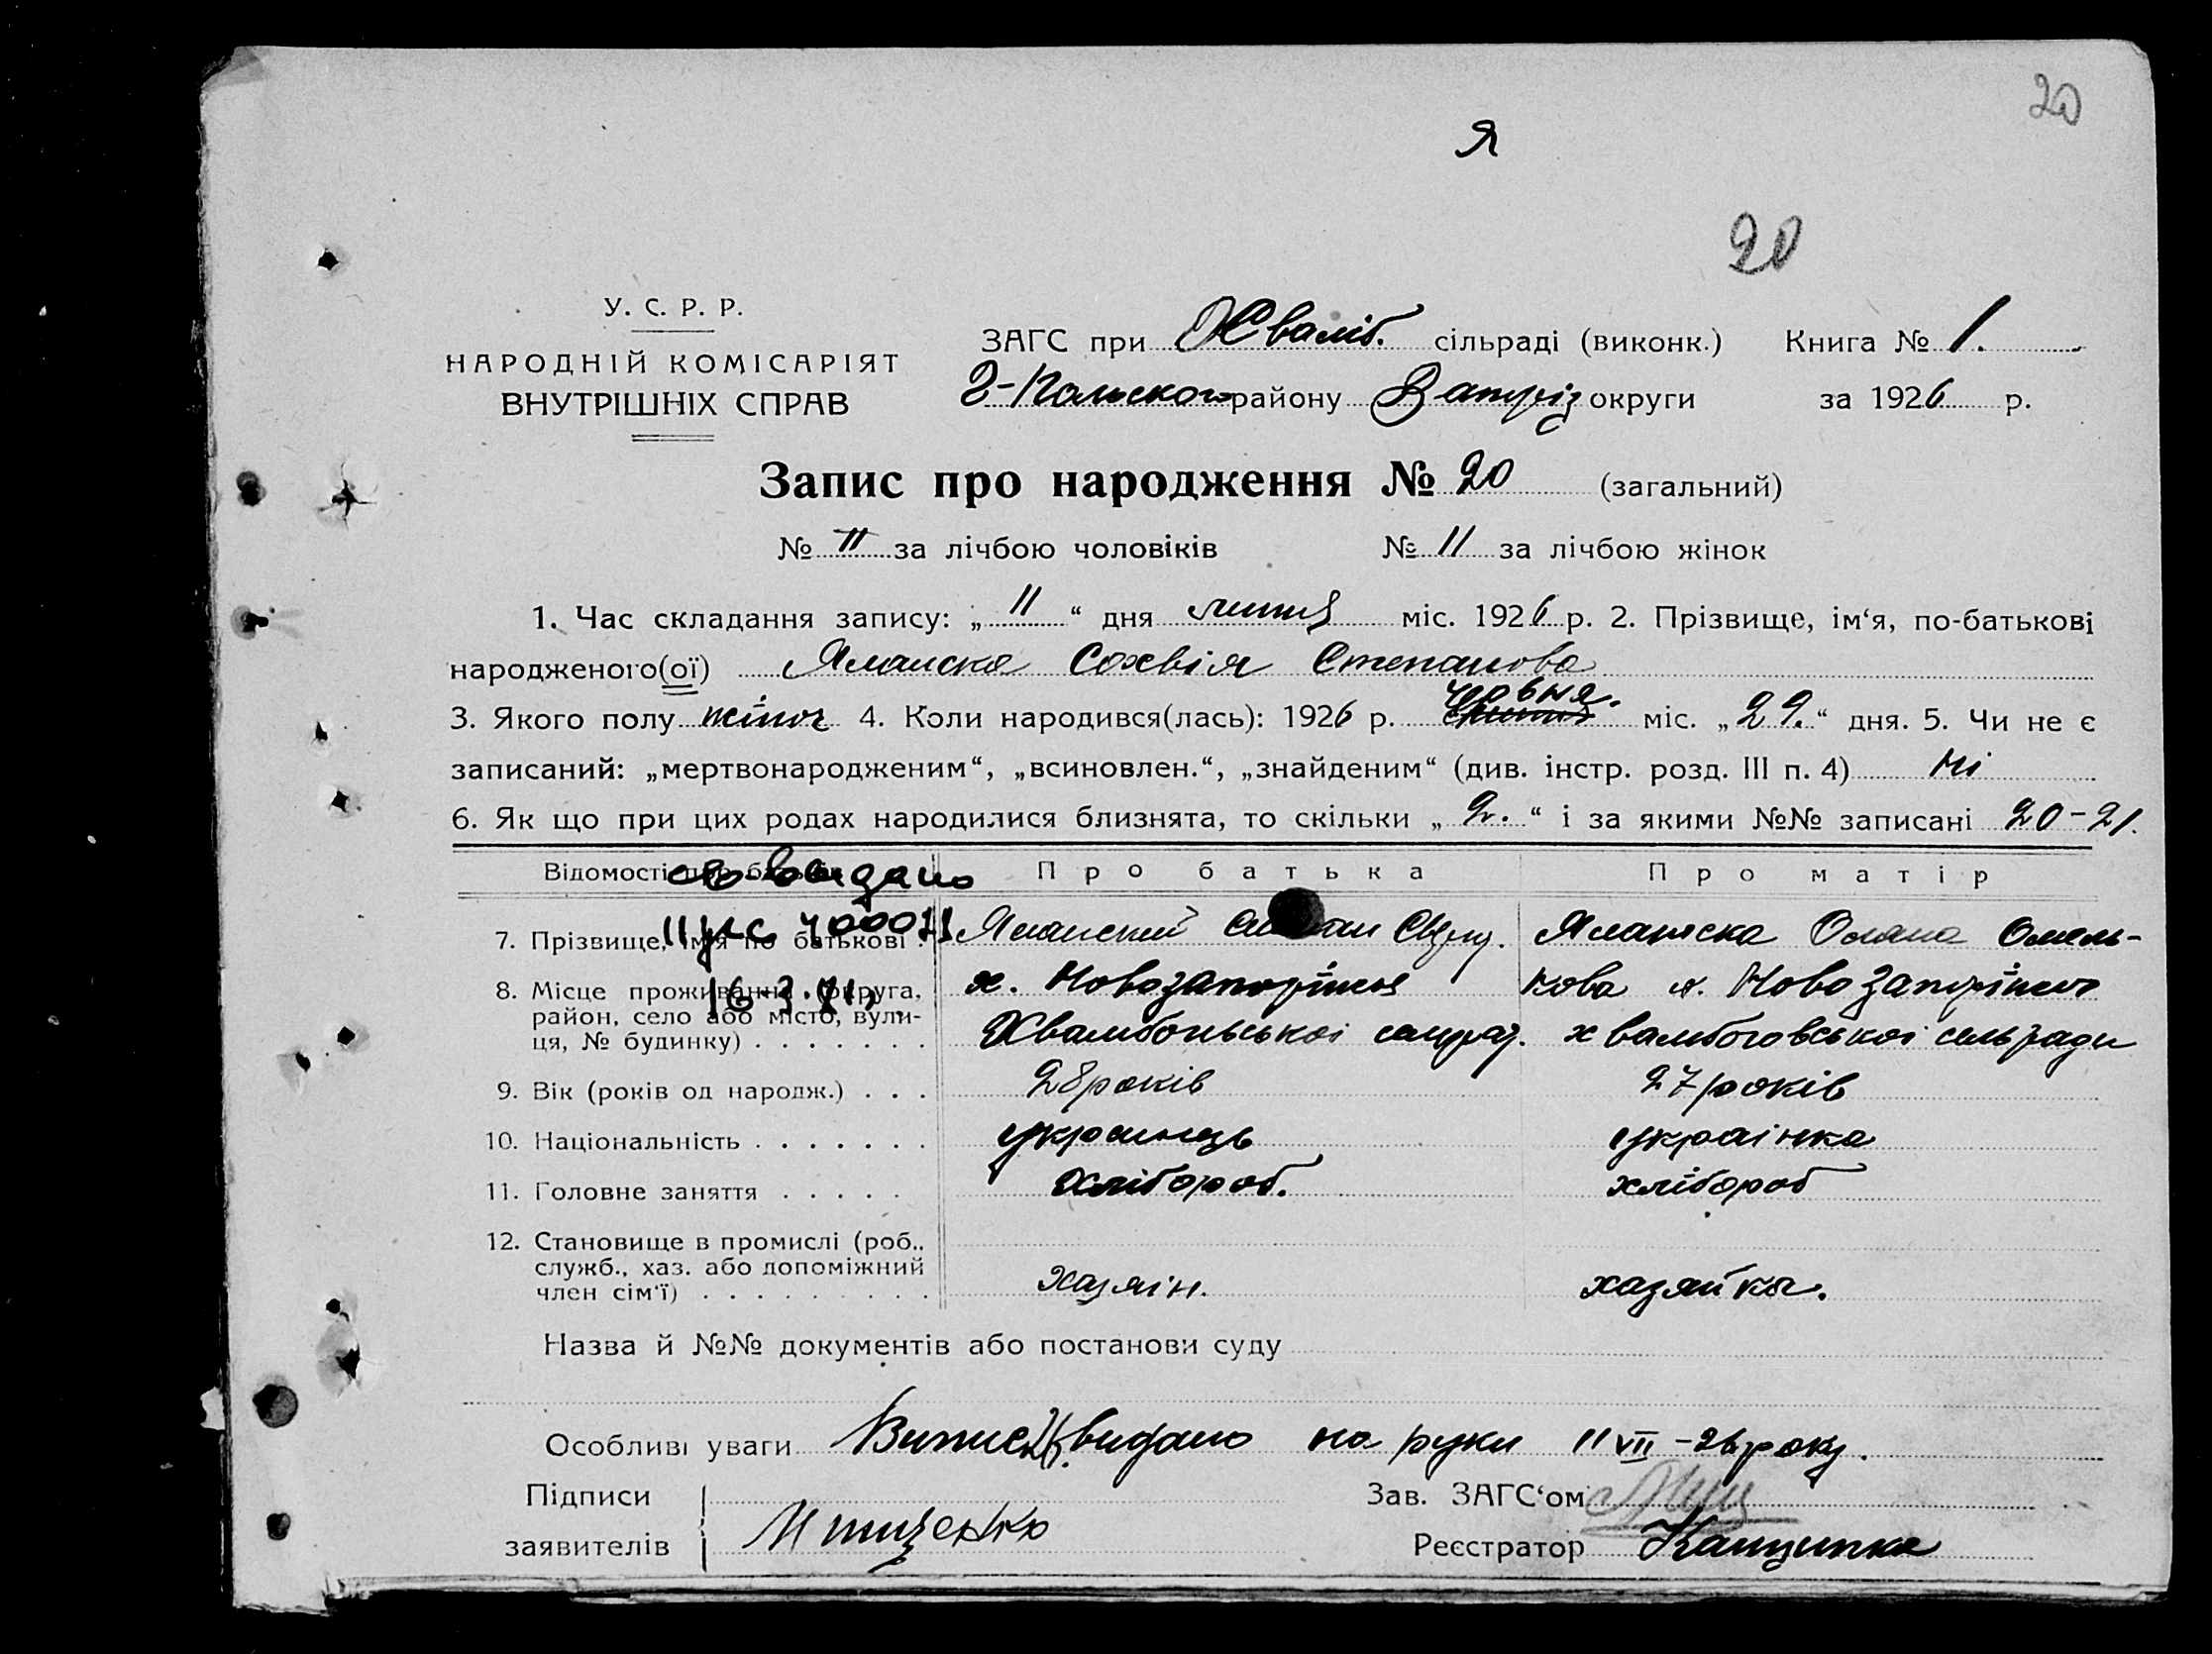 20
Я
20
У. С. Р. Р.
НАРОДНІЙ КОМІСАРІЯТ
ВНУТРІШНІХ СПРАВ
ЗАГС при Хваліб. сільраді (виконк.) Книга № 1.
району Запоріз округи за 1926 р.
Запис про народження № 20 (загальний)
№ за лічбою чоловіків № 11 за лічбою жінок
1. Час складання запису: „ 11 “ дня липня міс. 1926 р. 2. Прізвище, ім‘я, по-батькові
народженого(ої) Яланска Сохвія Степанова
3. Якого полу жіноч 4. Коли народився(лась): 1926 р. червня. міс. „ 29. “ дня. 5. Чи не є
записаний: „мертвонародженим“, „всиновлен.“, „знайденим“ (див. інстр. розд. III п. 4) Ні
6. Як що при цих родах народилися близнята, то скільки „ 2. “ і за якими №№ записані 20-21.
Відомості про батьків Про батька Про матір
св-во видано
7. Прізвище, ім‘я по батькові . Яланский Степан Яланска Олена Омель-
8. Місце проживання (округа, район, село або місто, вули-ця, № будинку) . . . . . . . х. Новозапоріжжя кова х. Новозапоріжжя
сельради
9. Вік (років од народж.) . . . 28 років 27 років
10. Національність . . . . . . . українець украінка
11. Головне заняття . . . . . Хлібороб. хлібороб
12. Становище в промислі (роб., служб., хаз. або допоміжний член сім‘ї) . . . . . . . . . Хазяін. хазяйка.
Назва й №№ документів або постанови суду
Особливі уваги Випис видано на руки 11 VII - 26 року.
Підписи Зав. ЗАГС‘ом
заявителів Мищенко Реєстратор